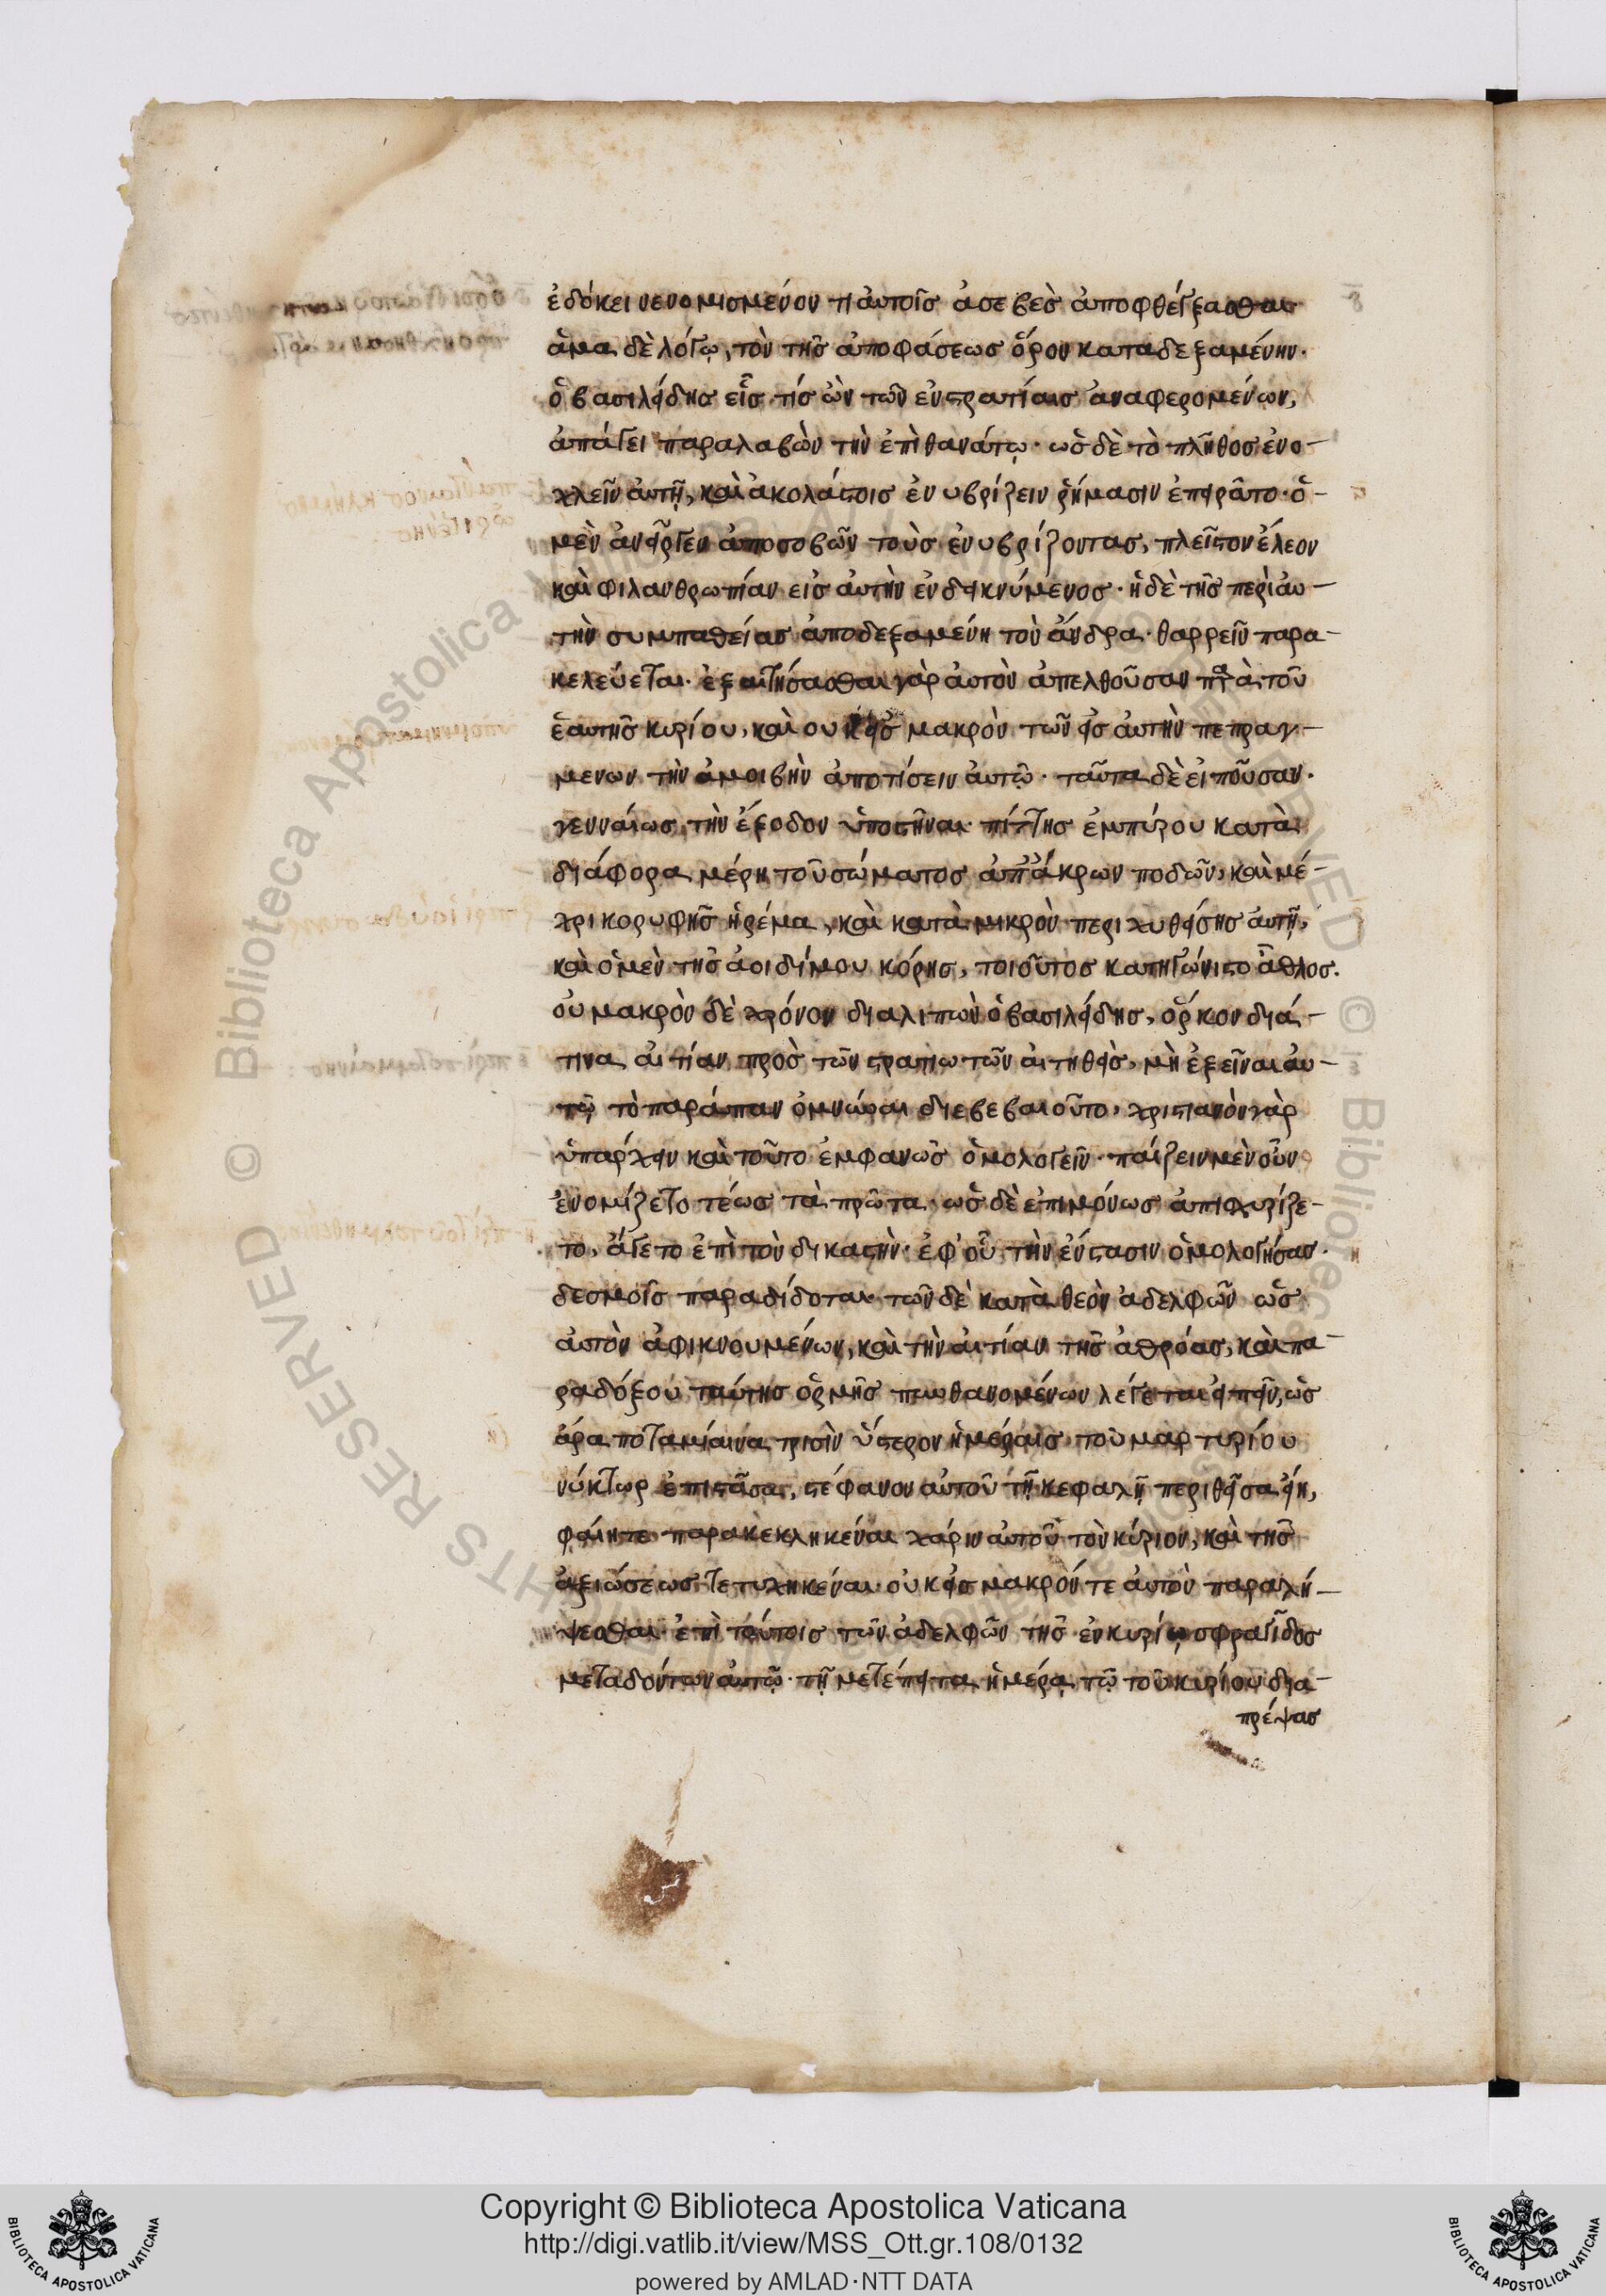 ἐδόκει νενομισμένον τι αὐτοῖς ἀσεβὲς ἀποφθέγξασθαι
ἅμα δὲ λόγῳ, τὸν τῆς ἀποφάσεως ὅρον καταδεξαμένην·
ὁ βασιλείδης εἷς τίς ὢν τῶν ἐν στρατίαις ἀναφερομένων,
ἀπάγει παραλαβὼν τὴν ἐπὶ θανάτῳ· ὡς δὲ τὸ πλῆθος ἐνο-
χλεῖν αὐτῇ, καὶ ἀκολάστοις ἐνυβρίζειν ῥήμασιν ἐπειρᾶτο· ὁ-
μὲν ἀνεῖργεν ἀποσοβῶν τοὺς ἐνυβρίζοντας, πλεῖστον ἔλεον
καὶ φιλανθρωπίαν εἰς αὐτὴν ἐνδεικνύμενος· ἡ δὲ τῆς περὶ αὐ-
τὴν συμπαθείας ἀποδεξαμένη τὸν ἄνδρα· θαρρεῖν παρα-
κελεύεται· ἐξαιτήσασθαι γὰρ αὐτὸν ἀπελθοῦσαν παρὰ τοῦ
ἑαυτῆς κυρίου, καὶ οὐκ εἰς μακρὸν τῶν εἰς αὐτὴν πεπραγ-
μενων τὴν ἀμοιβὴν ἀποτίσειν αὐτῷ· ταῦτα δὲ εἰποῦσαν·
γενναίως τὴν ἔξοδον ὑποστῆναι· πίττης ἐμπύρου κατὰ
διάφορα μέρη τοῦ σώματος ἀπ' ἄκρων ποδῶν, καὶ μέ-
χρι κορυφῆς ἠρέμα, καὶ κατὰ μικρὸν περιχυθείσης αὐτῇ,
καὶ ὁ μὲν τῆς ἀοιδίμου κόρης, τοιοῦτος κατηγώνιστο ἆθλος.
οὐ μακρὸν δὲ χρόνον διαλιπὼν ὁ βασιλείδης, ὅρκον διά-
τινα αἰτίαν πρὸς τῶν στρατιωτῶν αἰτηθεὶς, μὴ ἐξεῖναι αὐ-
τῷ τὸ παράπαν ὀμνύναι διεβεβαιοῦτο, χριστιανὸν γὰρ
ὑπάρχειν καὶ τοῦτο ἐμφανῶς ὁμολογεῖν· παίζειν μὲν οὖν
ἐνομίζετο τέως τὰ πρῶτα· ὡς δὲ ἐπιμόνως ἀπισχυρίζε-
το, ἄγετο ἐπὶ τὸν δικαστὴν· ἐφ' οὗ τὴν ἔνστασιν ὁμολογήσας·
δεσμοῖς παραδίδοται· τῶν δὲ κατὰ θεὸν ἀδελφῶν ὡς
αὐτὸν ἀφικνουμένων, καὶ τὴν αἰτίαν τῆς ἀθρόας, καὶ πα-
ραδόξου ταύτης ὁρμῆς πυνθανομένων λέγεται εἰπεῖν, ὡς
ἄρα ποταμίαινα τρισὶν ὕστερον ἡμέραις τοῦ μαρτυρίου
νύκτωρ ἐπιστᾶσα, στέφανον αὐτοῦ τῇ κεφαλῇ περιθεῖσα εἴη,
φαίη τε παρακεκληκέναι χάριν αὐτοῦ τὸν κύριον, καὶ τῆς
ἀξιώσεως τετυχηκέναι· οὐκ εἰς μακρόν τε αὐτὸν παραλή-
ψεσθαι· ἐπὶ τούτοις τῶν ἀδελφῶν τῆς ἐν κυρίῳ σφραγῖδος
μεταδόντων αὐτῷ· τῇ μετέπειτα ἡμέρᾳ τῷ τοῦ κυρίου δια-
πρέψας
Copyright © Biblioteca Apostolica Vaticana
http://digi.vatlib.it/view/MSS_Ott.gr.108/0132
powered by AMLAD·NTT DATA